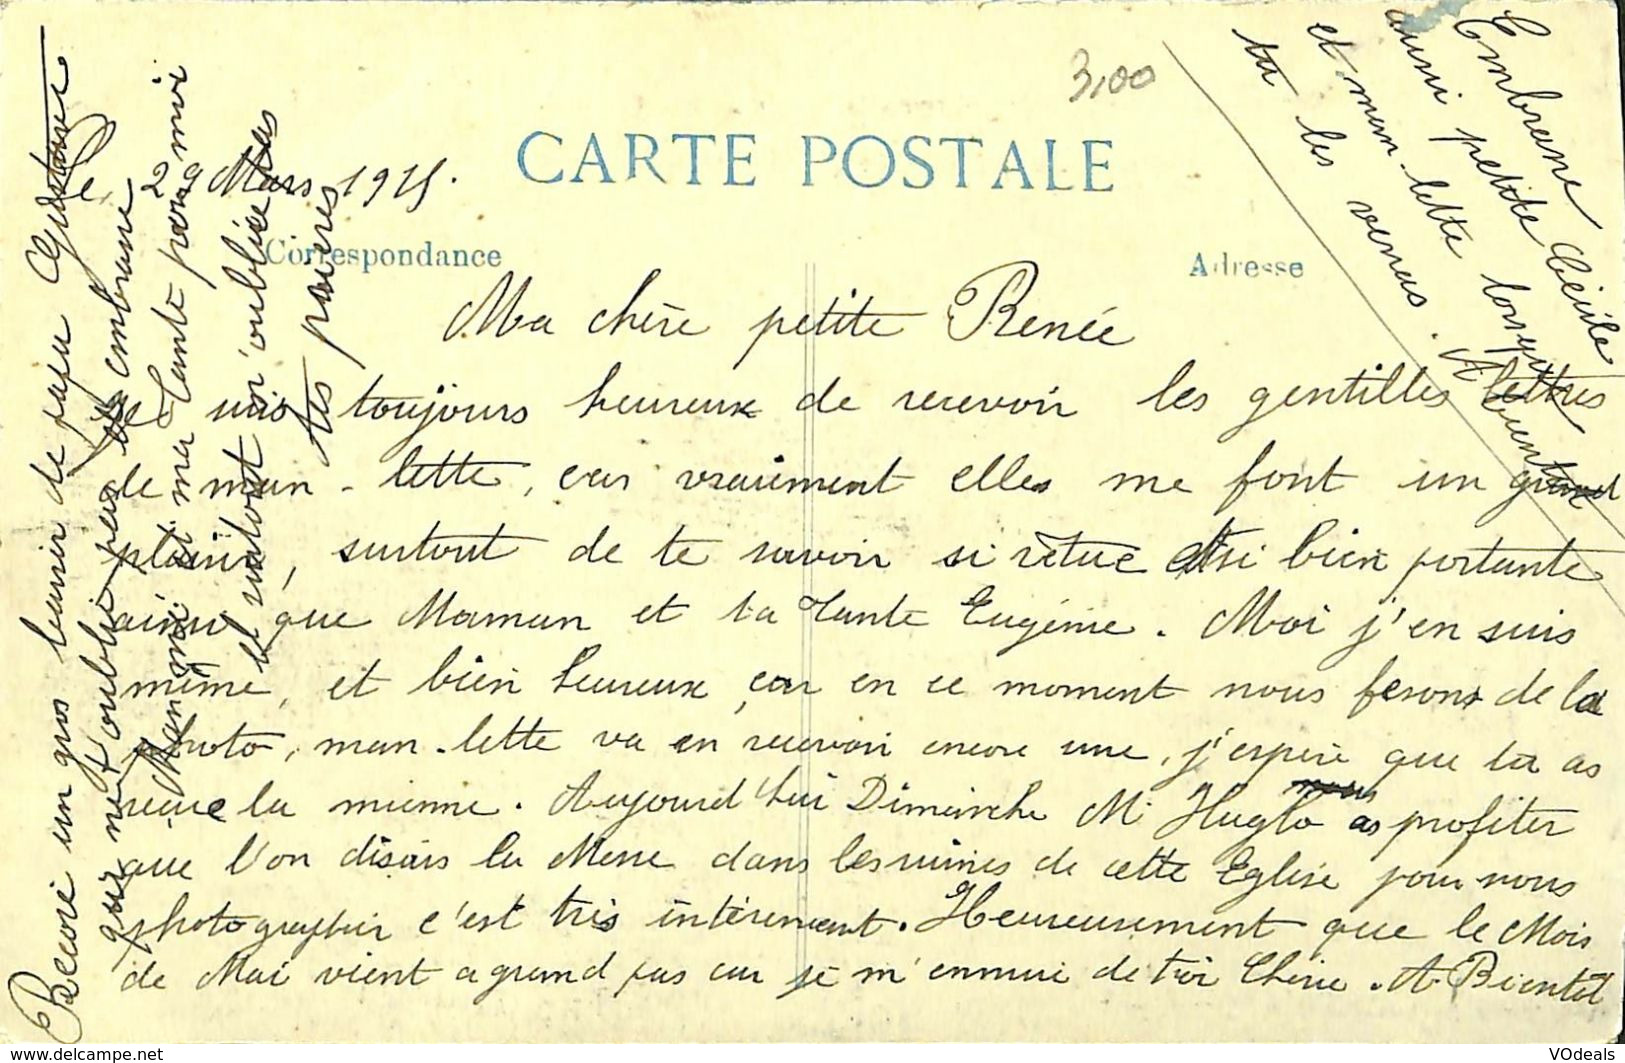 3,00
CARTE POSTALE
Le 29 Mars 1915.
Correspondance
Adresse
Ma chère petite Renée
Je suis toujours heureux de recevoir les gentilles lettres
de man-lette, car vraiment elles me font un grand
plaisir, surtout de te savoir si rétue et si bien portante
ainsi que Maman et ta Tante Eugénie. Moi j'en suis
même, et bien heureux, car en ce moment nous fesons de la
photo, man-lette va en recevoir encore une, j'espère que tu as
recue la mienne. Aujourd'hui Dimanche Mr Huglo nous as profiter
que l'on disais la Messe dans les ruines de cette Eglise pour nous
photographier c'est très intéressent. Heureusement que le Mois
de Mai vient a grand pas car je m'ennuie de toi Chérie. A Bientôt
Recoie un gros baisir de papa Gustave
qui ne t'oublie pas
embrasse
Maman et ma Tante pour moi
et surtout n'oublie pas
tes prières
Embrasse
aussi petite Cécile
et man-lette lorsque
tu les verras. A Bientôt
www.delcampe.net
VOdeals